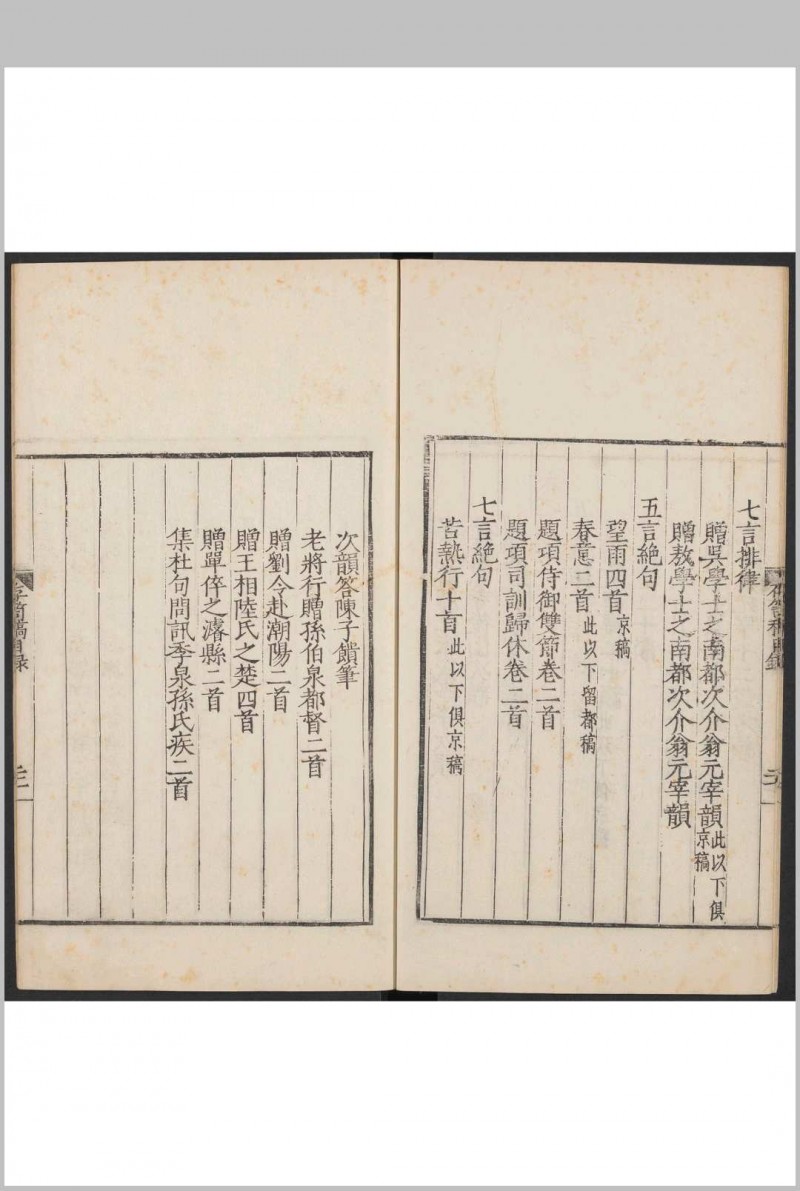 七言排律
贈吳學士之南都次介翁元宰韻此以下俱京稿
贈敖學士之南都次介翁元宰韻
五言絕句
望雨四首京稿
春意二首此以下留都稿
題項侍御雙節卷二首
題項司訓歸休卷二首
七言絕句
苦熱行十首此以下俱京稿
次韻答陳子饋筆
老將行贈孫伯泉都督二首
贈劉令赴潮陽二首
贈王相陸氏之楚四首
贈單倅之濬縣二首
集杜句問訊季泉孫氏疾二首